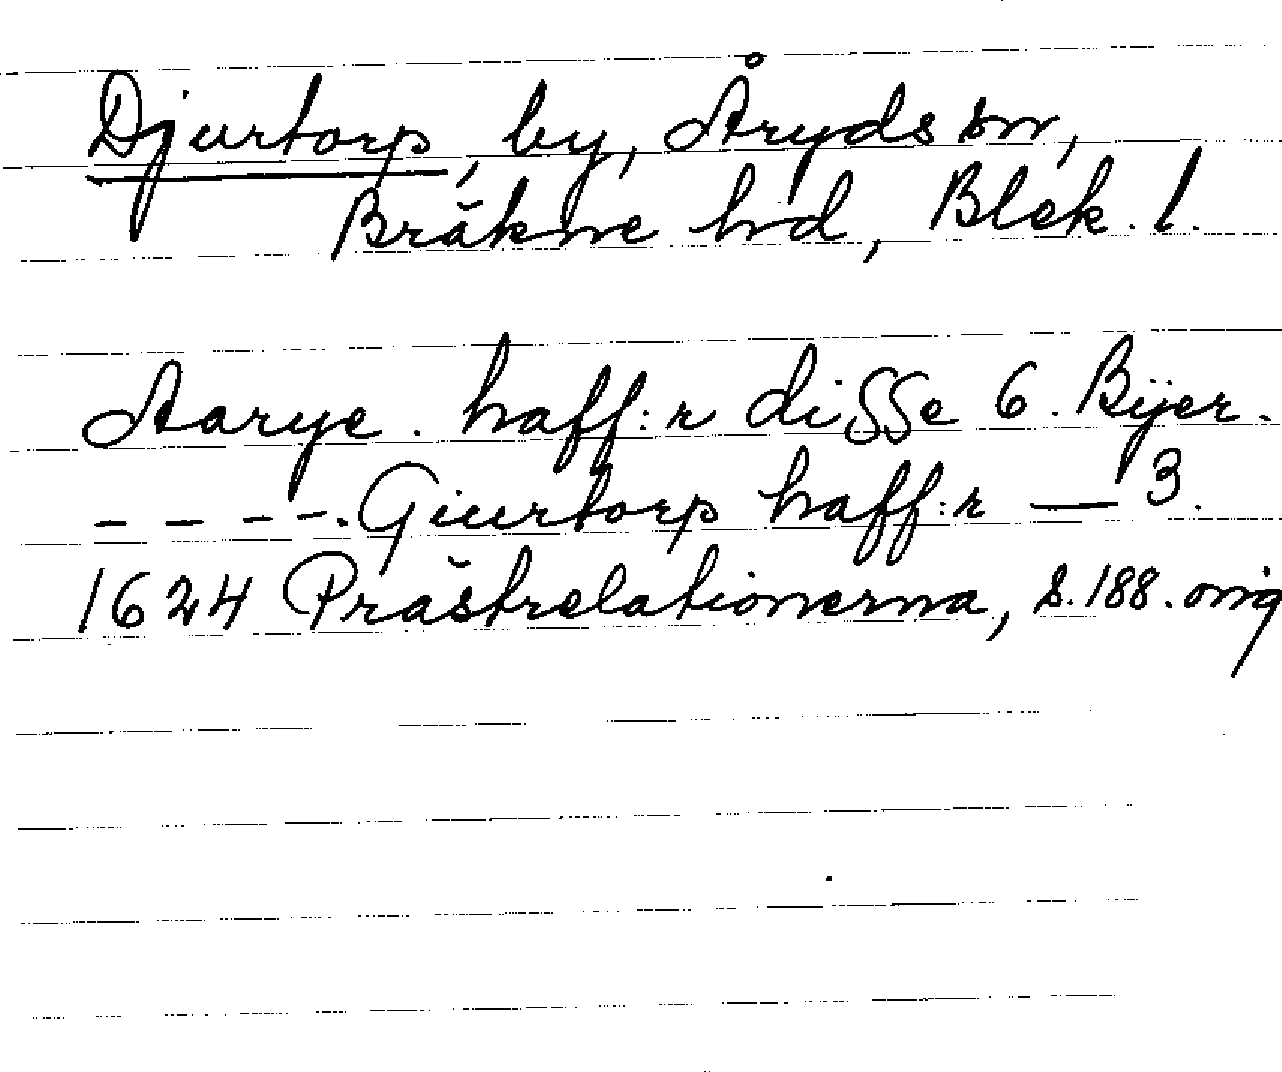 Djurtorp, by, Åryds sn,
Bräkne hd, Blek. l.
Aarye. haff:r disse 6. Bÿer.
- - - -. Giurtorp haff:r — 3.
1624 Prästrelationerna, s. 188. orig